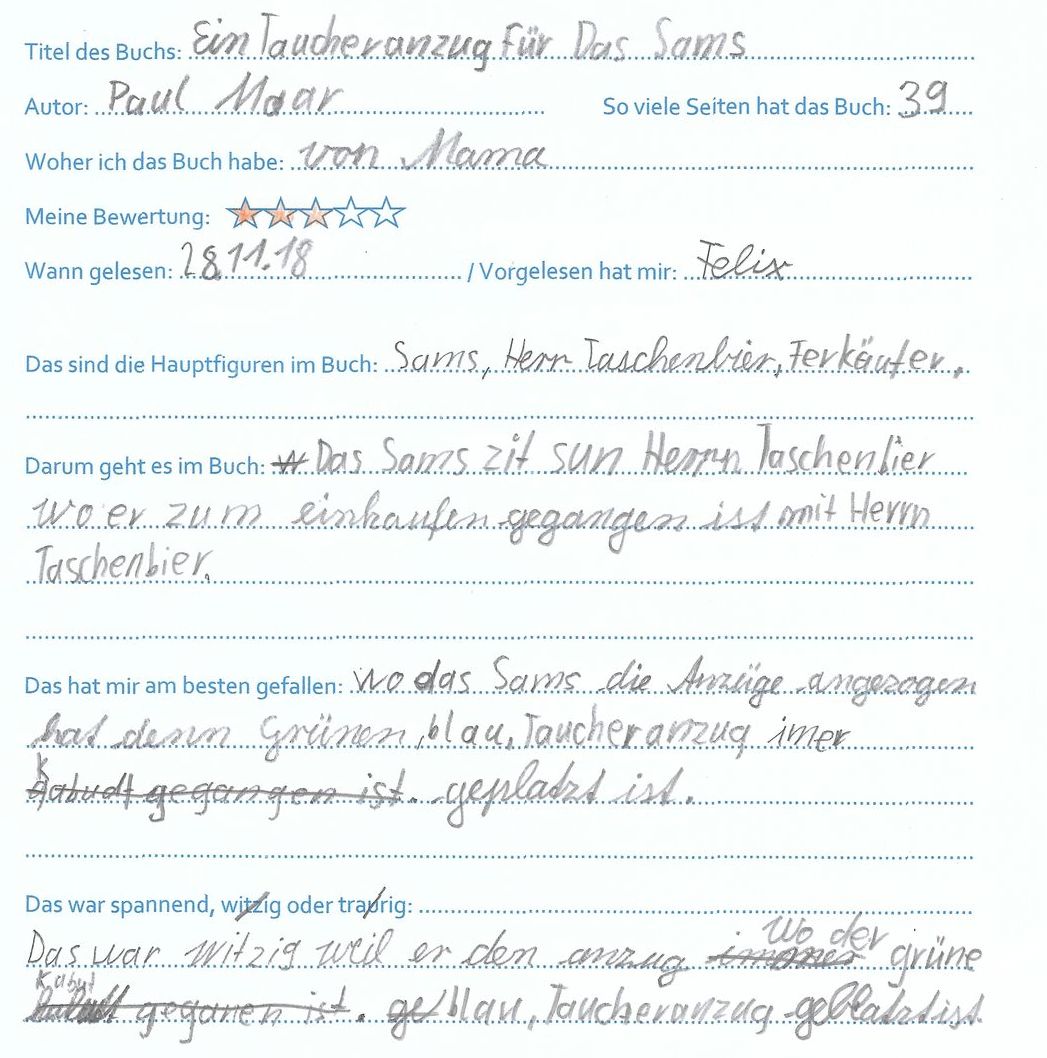 Titel des Buchs: Ein Taucheranzug Für Das Sams
Autor: Paul Maar So viele Seiten hat das Buch: 39
Woher ich das Buch habe: von Mama
Meine Bewertung:
Wann gelesen: 28.11.18 / Vorgelesen hat mir: Felix
Das sind die Hauptfiguren im Buch: Sams, Herr Taschenbier, Ferkäufer.
Darum geht es im Buch: Das Sams zit sun Herrn Taschenbier
wo er zum einkaufen gegangen ist mit Herrn
Taschenbier.
Das hat mir am besten gefallen: wo das Sams die Anzüge angezogen
hat denn Grünen, blau, Taucheranzug imer
Kabudt gegangen ist. geplatzt ist.
Das war spannend, witzig oder traurig:
wo der
Das war witzig weil er den anzug immer grüne
Kabut
geganen ist. ge blau, Taucheranzug geblatzt ist